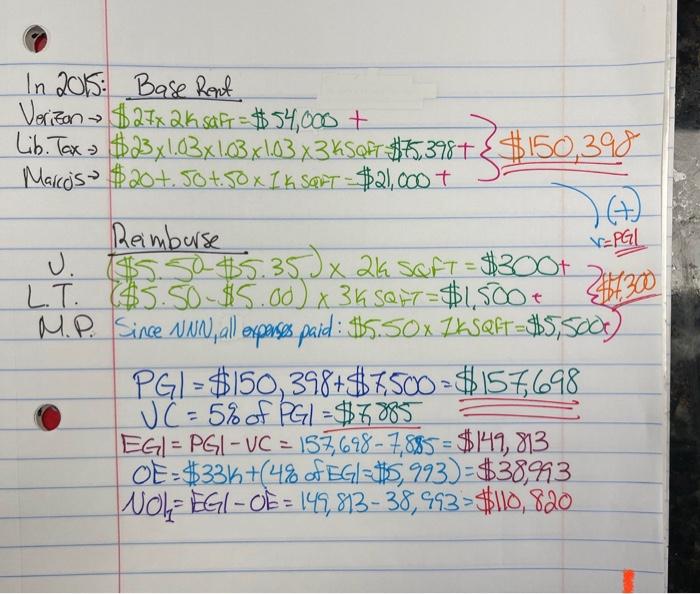 In 2015: Base Rent
Verizon → $27 x 2k SQFT = $54,000 +
Lib. Tax → $23 x 1.03 x 1.03 x 1.03 x 3k SQFT = $75,398 + $150,398
Marco's → $20 + .50 + .50 x 1k SQFT = $21,000 +
(+)
r = PGI
Reimburse
V. ($5.50 - $5.35) x 2k SQFT = $300 +
L.T. ($5.50 - $5.00) x 3k SQFT = $1,500 + $7,300
M.P. Since NNN, all expenses paid: $5.50 x 1k SQFT = $5,500
PGI = $150,398 + $7,500 = $157,698
VC = 5% of PGI = $7,885
EGI = PGI - VC = 157,698 - 7,885 = $149,813
OE = $33k + (4% of EGI = $5,993) = $38,993
NOI₁ = EGI - OE = 149,813 - 38,993 = $110,820